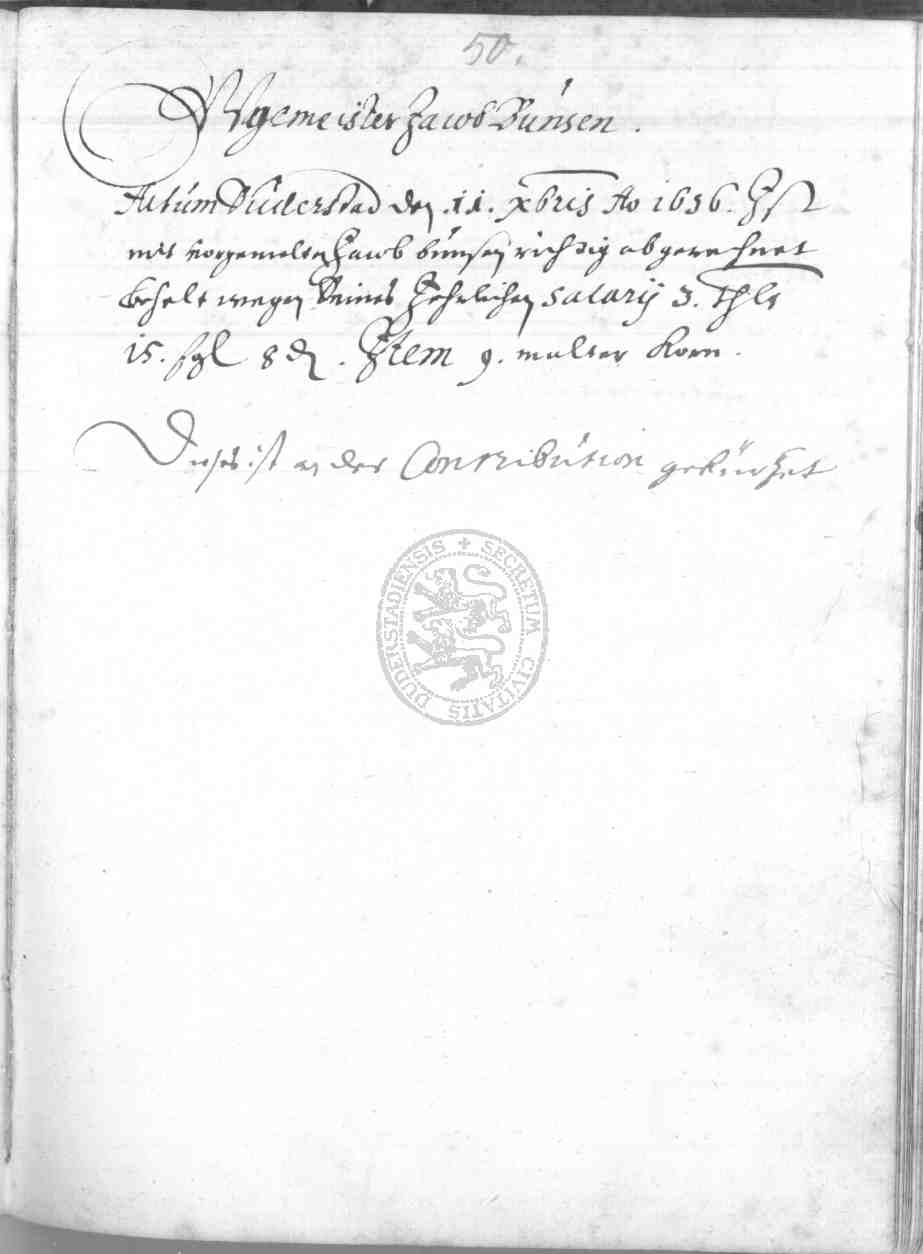 50.
Wgemeister Jacob Bünsen.
Actum Duderstad den .11. xbris Ao 1636. Ist
mit vorgemelten Jacob bünsen richtig abgerechnet
behelt wegen Seines Jehrlichen Salarij 3. Thlr
15. sgl 8 d. Item 9. malter Korn.
Dieses ist an der Contribution gekürtzet
SECRETUM CIVITATIS DUDERSTADIENSIS +